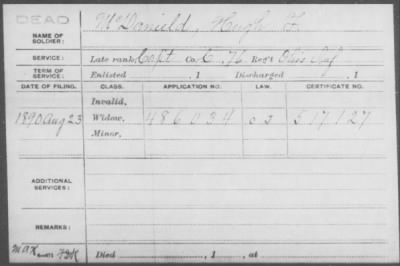 DEAD
McDanield, Hugh F.
NAME OF SOLDIER:
SERVICE: Late rank, Capt Co. E. 76 Reg't Ohio Inf
TERM OF SERVICE: Enlisted , 1 Discharged , 1
DATE OF FILING. CLASS. APPLICATION NO. LAW. CERTIFICATE NO.
Invalid,
1890 Aug 23 Widow, 486034 517,127
Minor,
ADDITIONAL SERVICES:
REMARKS:
Died , 1 , at